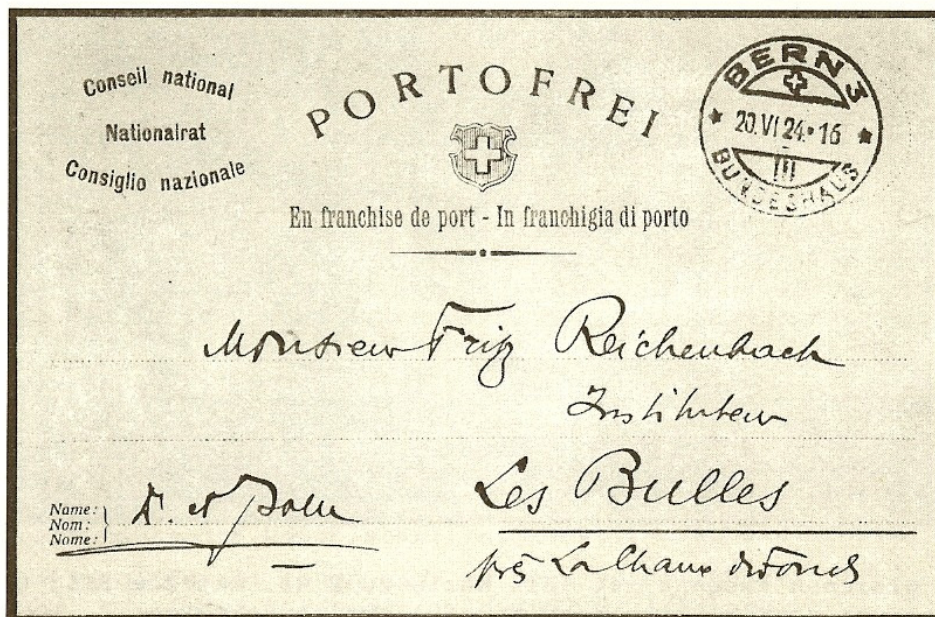 Conseil national
Nationalrat
Consiglio nazionale
PORTOFREI
En franchise de port - In franchigia di porto
BERN 3
20.VI 24.16
III
BUNDESHAUS
Monsieur Fritz Reichenbach
Instituteur
Les Bulles
près La Chaux de Fonds
Name:
Nom:
Nome: